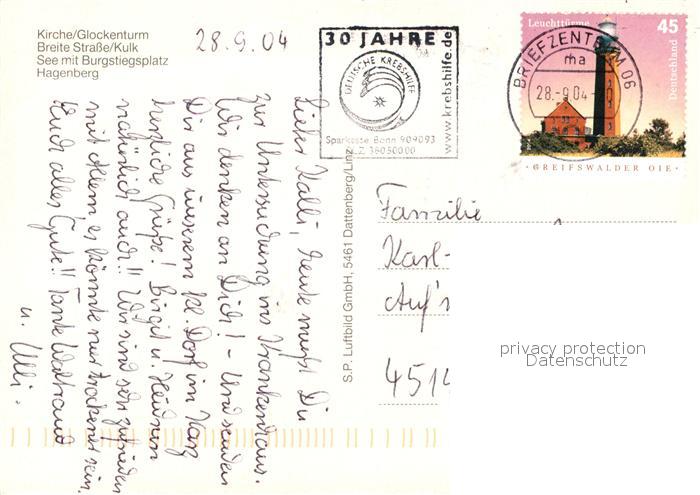 Kirche/Glockenturm
Breite Straße/Kulk
See mit Burgstiegsplatz
Hagenberg
28.9.04
Lieber Kalli, heute mußt Du
zur Untersuchung ins Krankenhaus.
Wir denken an Dich! - Und senden
Dir aus unserem kl. Dorf im Harz
herzliche Grüße! Birgit u. Heidrun
natürlich auch!! Wir sind sehr zufrieden
mit allem, es könnte nur trockener sein.
Euch alles Gute!! Tante Waltraud
u. Ulli.
S.P. Luftbild GmbH, 5461 Dattenberg/Linz
30 JAHRE
DEUTSCHE KREBSHILFE
www.krebshilfe.de
Sparkasse Bonn 909093
BLZ 38050000
BRIEFZENTRUM 06
ma
28.-9.04
Leuchttürme
45
Deutschland
GREIFSWALDER OIE
Familie
Karl-
Auf'
4514
privacy protection
Datenschutz